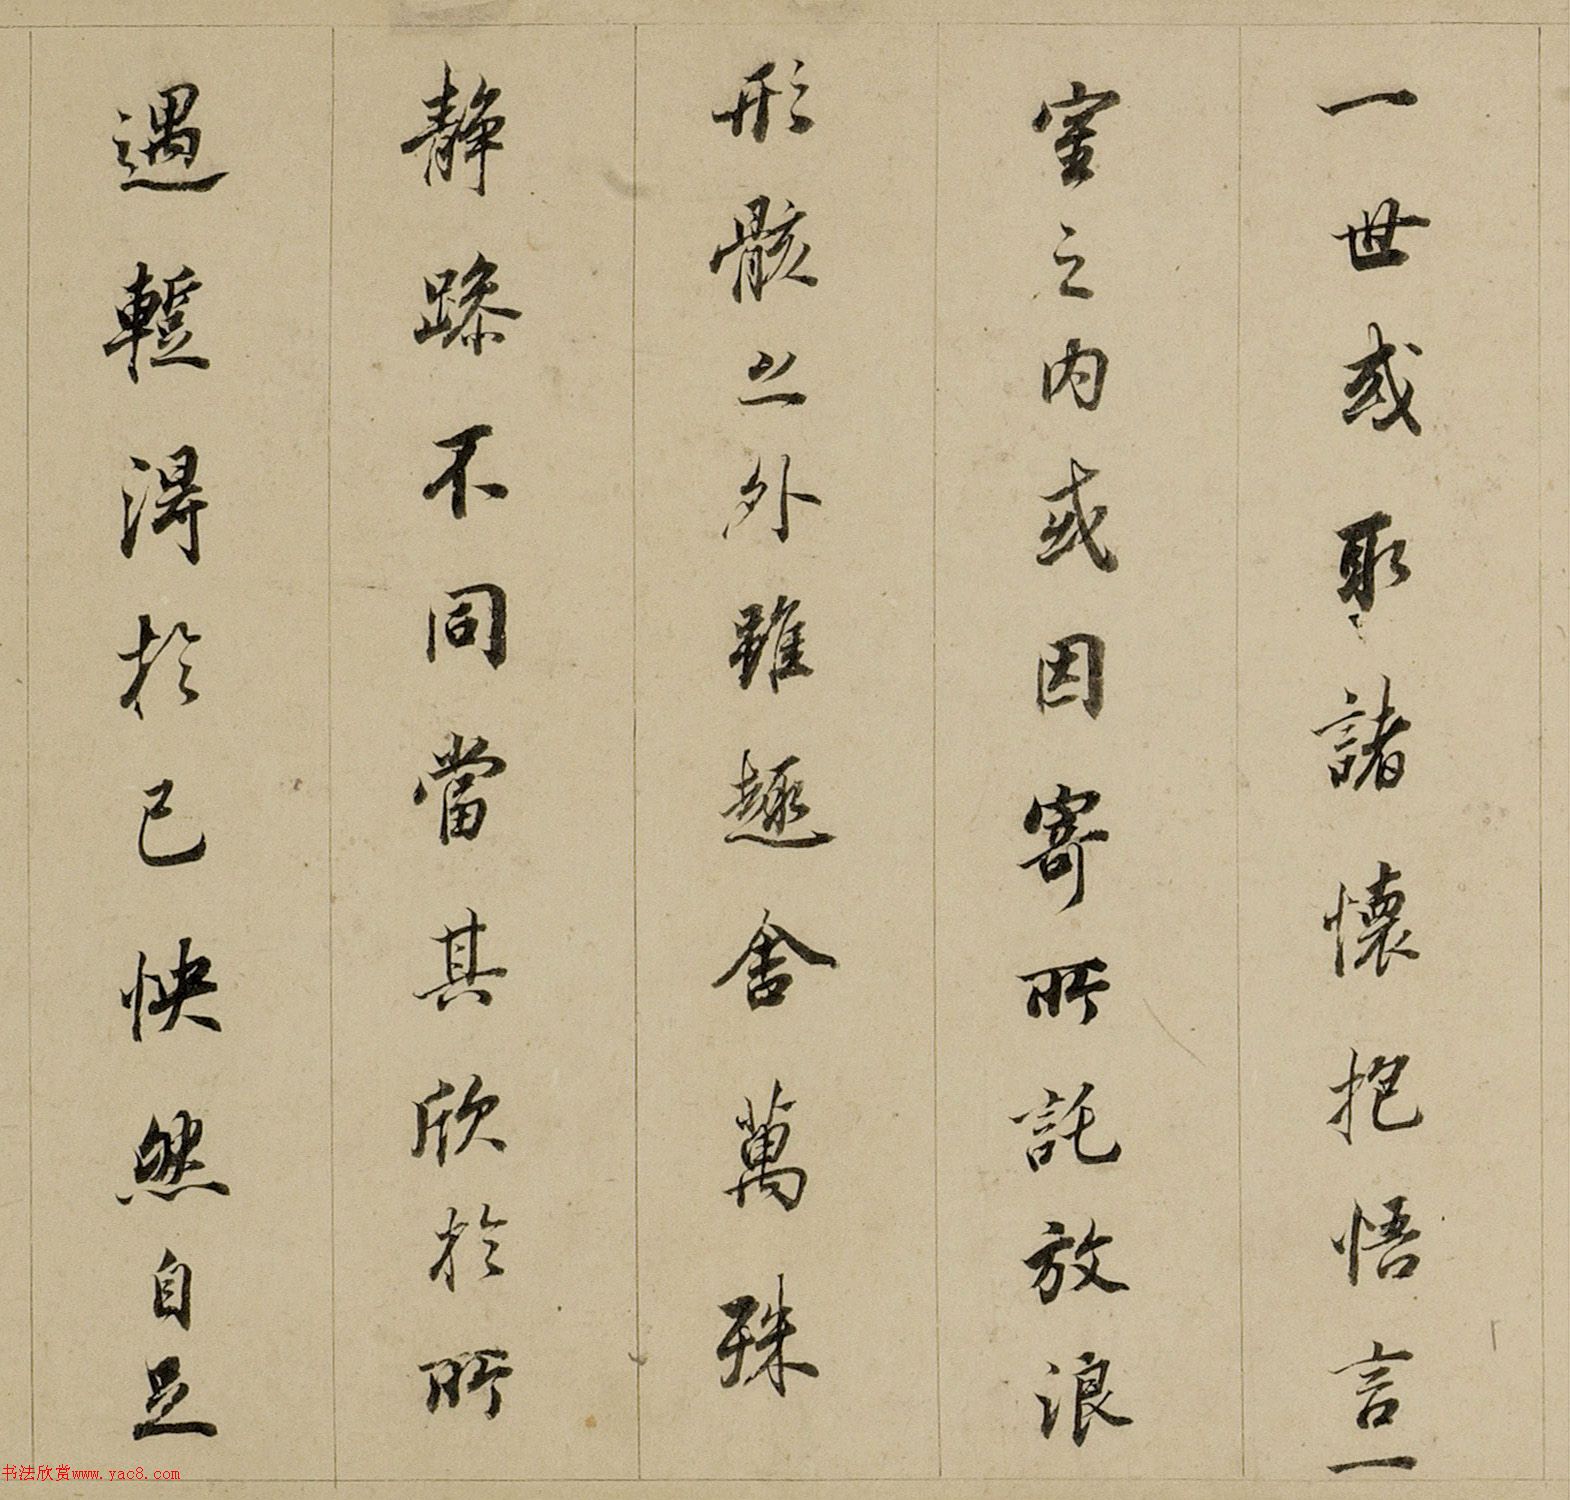 一世或取諸懷抱悟言一
室之内或因寄所託放浪
形骸之外雖趣舍萬殊
静躁不同當其欣於所
遇蹔得於己怏然自足
书法欣赏www.yac8.com